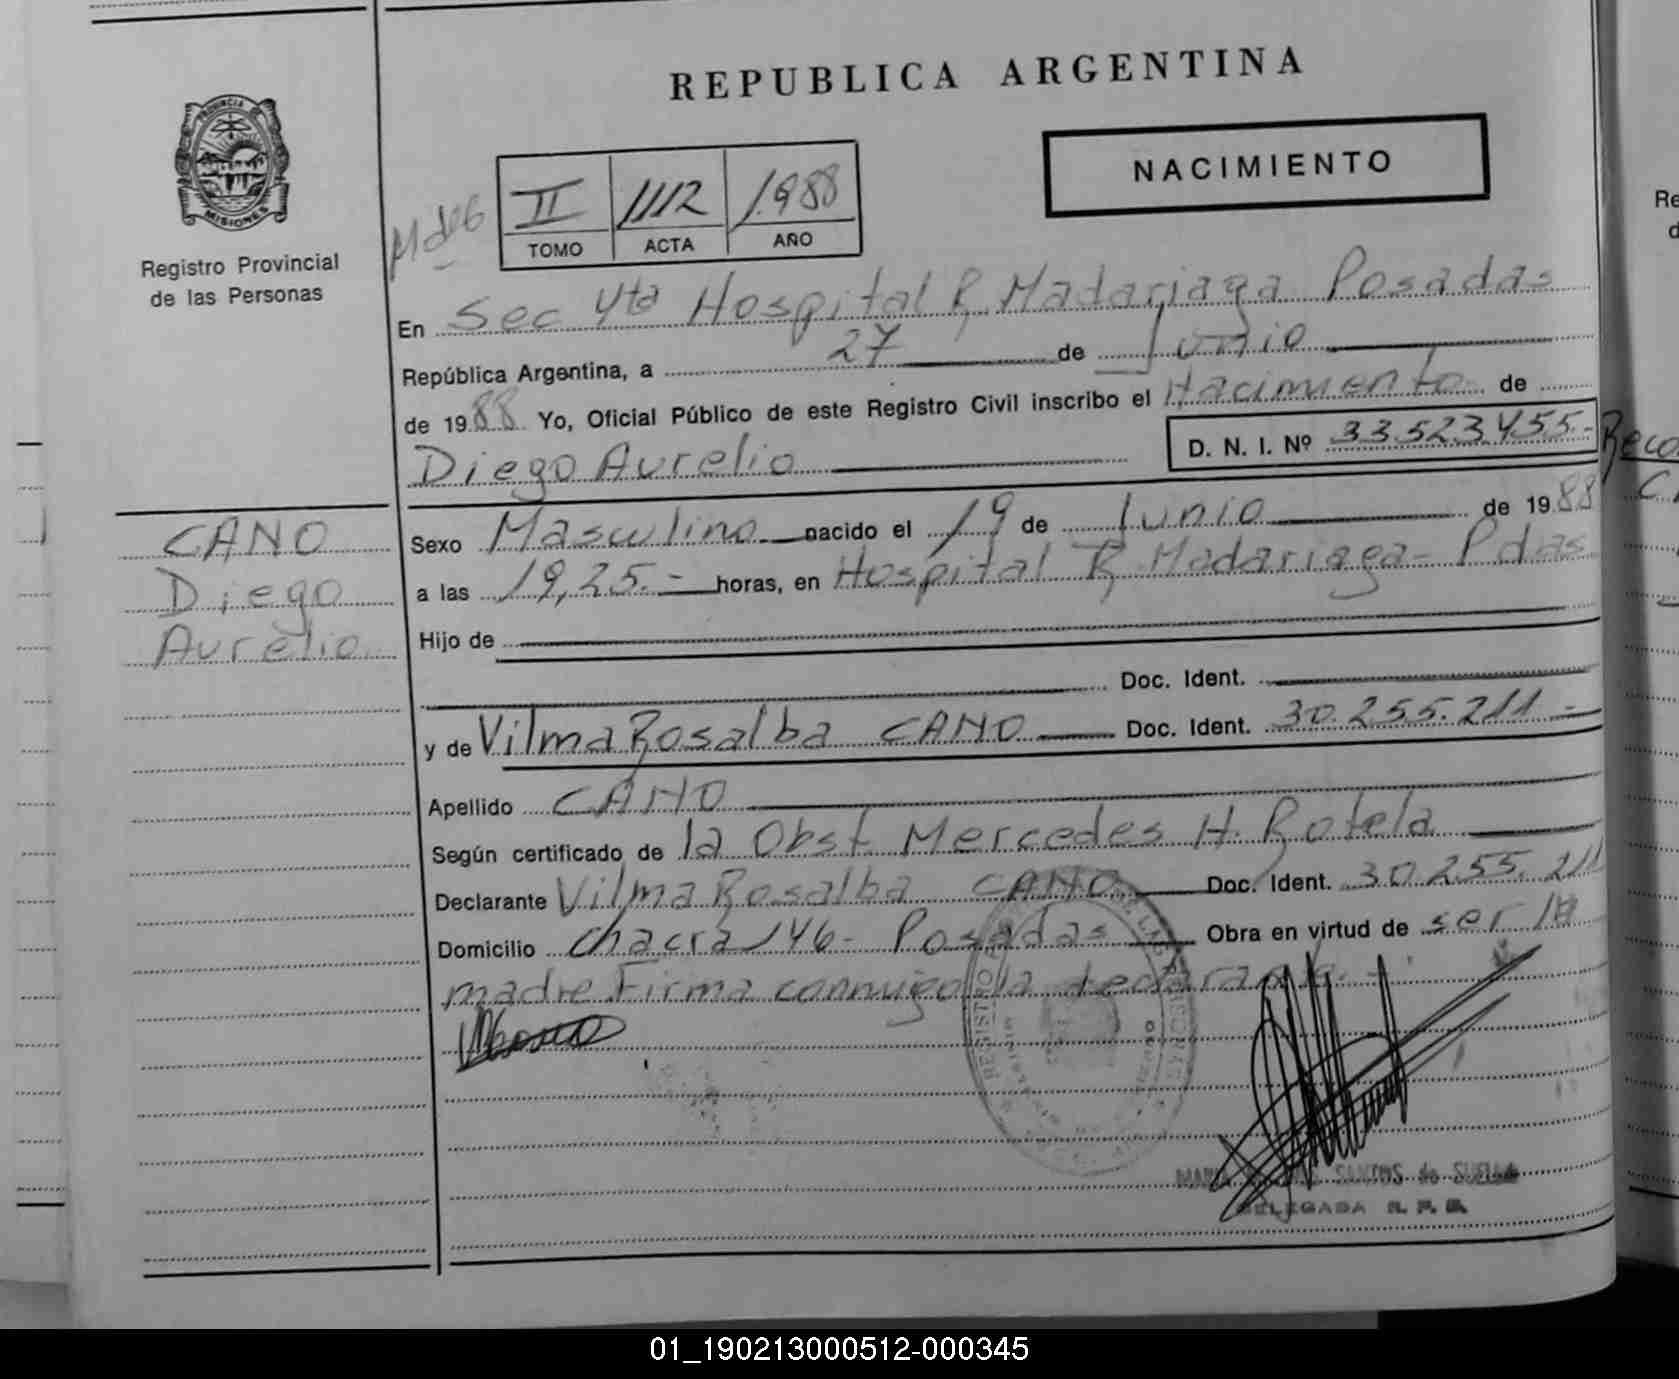 REPUBLICA ARGENTINA
PROVINCIA DE
MISIONES
Registro Provincial
de las Personas
NACIMIENTO
II 1112 1.988
TOMO ACTA AÑO
En Sec 4ta Hospital R. Madariaga Posadas
República Argentina, a 27 de Junio
de 1988 Yo, Oficial Público de este Registro Civil inscribo el Nacimiento de
Diego Aurelio D. N. I. Nº 33523455.-
CANO
Diego
Aurelio
Sexo Masculino nacido el 19 de Junio de 1988
a las 19,25.- horas, en Hospital R. Madariaga- Pdas
Hijo de
Doc. Ident.
y de Vilma Rosalba CANO Doc. Ident. 30.255.211.-
Apellido CANO
Según certificado de la Obst. Mercedes H. Rotela
Declarante Vilma Rosalba CANO Doc. Ident. 30.255.211
Domicilio Chacra 146- Posadas Obra en virtud de ser la
madre Firma conmigo la
REGISTRO
SANTOS de
DELEGADA R. P. P.
Re
d
Reco
01_190213000512-000345